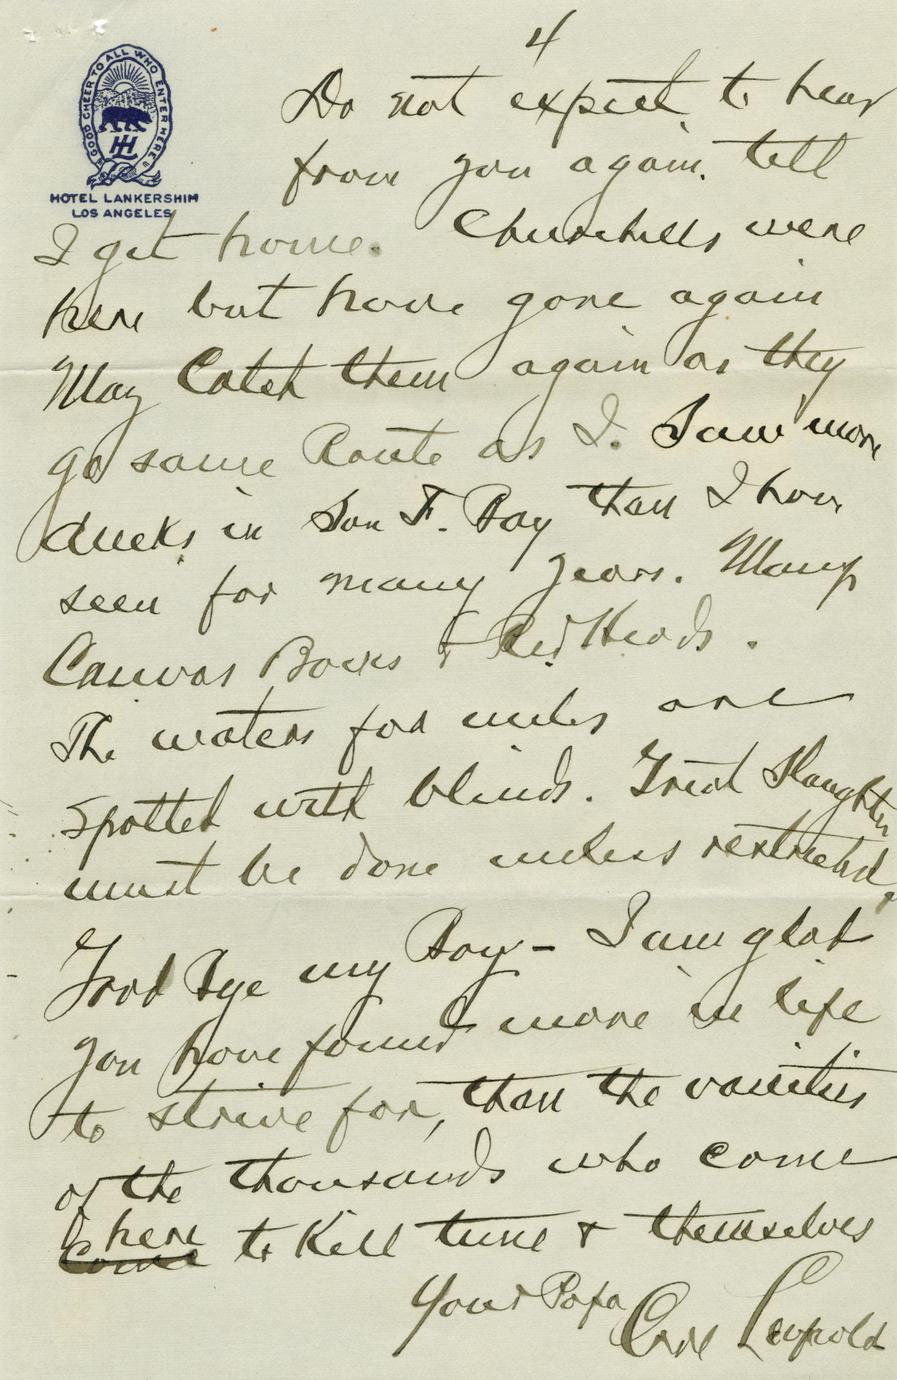 4
GOOD CHEER TO ALL WHO ENTER HERE
HL
HOTEL LANKERSHIM
LOS ANGELES
Do not expect to hear
from you again till
I get home. Churchills were
here but have gone again
May Catch them again as they
go same Route as I. Saw more
ducks in San F. Bay than I have
seen for many years. Many
Canvas Backs & Red Heads.
The waters for miles are
spotted with blinds. Great Slaughter
must be done unless restricted.
Good Bye my Boy - I am glad
you have found more in life
to strive for, than the vanities
of the thousands who come
here
come to Kill time & themselves
Your Papa Carl Leopold